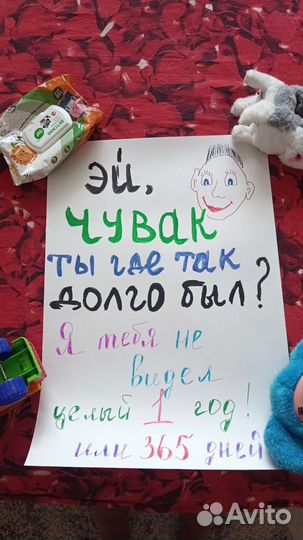 ЭЙ,
ЧУВАК
ТЫ ГДЕ ТАК
ДОЛГО БЫЛ?
Я тебя не
видел
целый 1 год!
или 365 дней
Avito